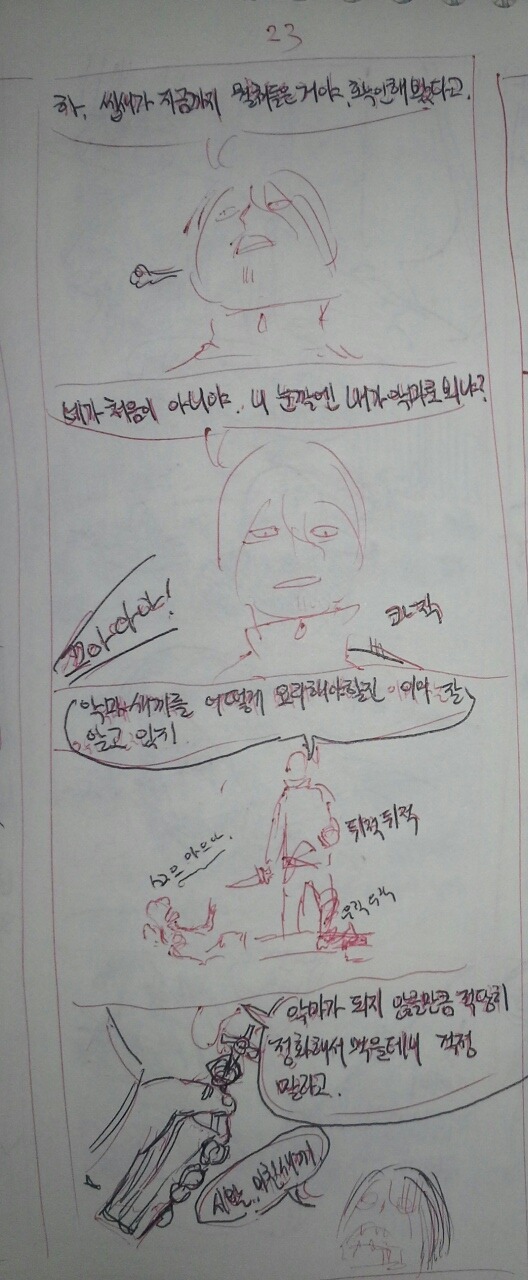 23
하, 씹새가 지금까지 뭘쳐들은거야. 확인해봤다고.
네가 처음이 아니야. 니 눈깔엔 내가 악마로 뵈냐?
끄아아아!
콰직
악마새끼를 어떻게 요리해야할진 이미 잘
알고 있지
뒤적뒤적
우직우직
악마가 되지 않을만큼 적당히
정화해서 먹을테니 걱정
말라고.
시발.. 미친새끼